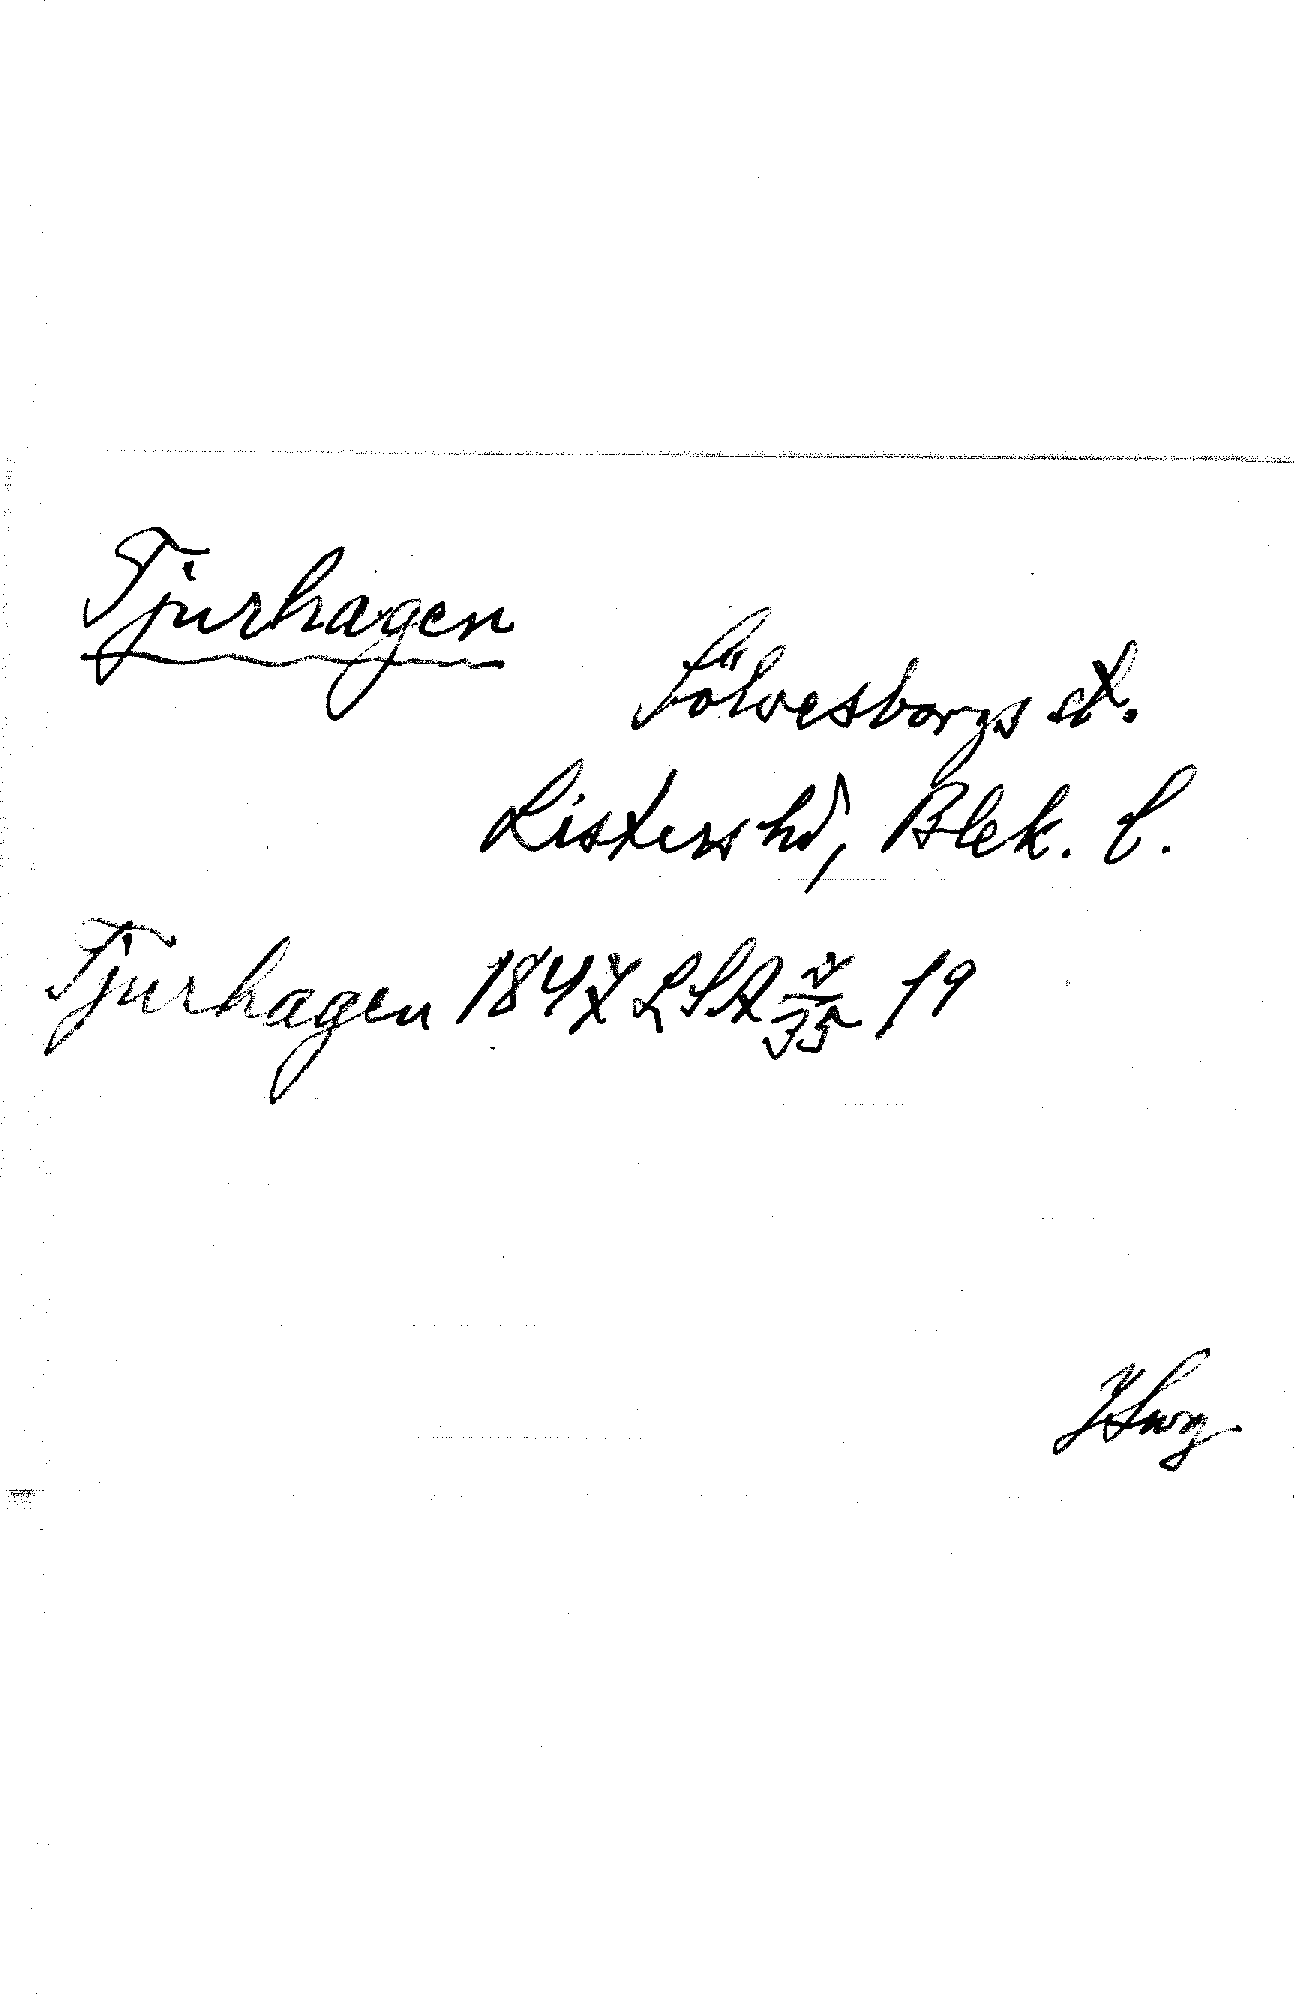 Tjurhagen
Sölvesborgs st.
Listers hd, Blek. l.
Tjurhagen 1847 LSA 19